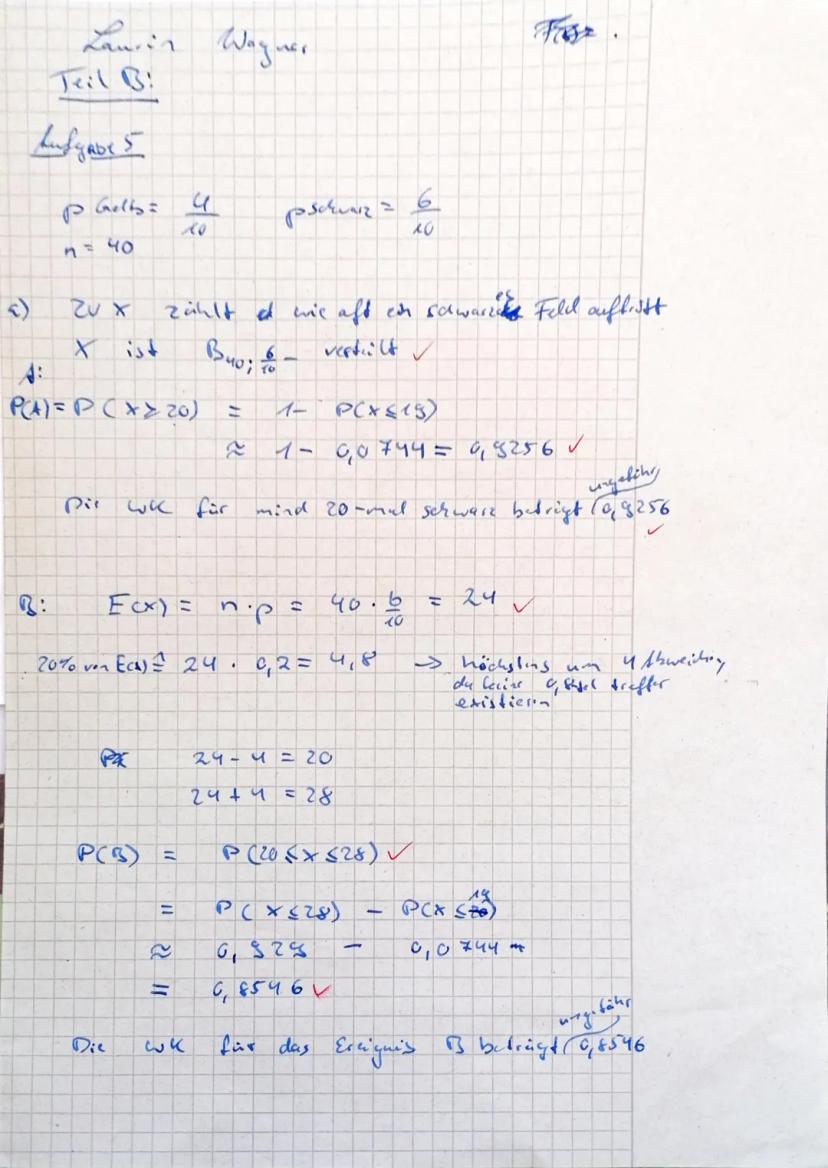 Laurin Wagner
Teil B:
Aufgabe 5
p Gelb = 4/10 p schwarz = 6/10
n = 40
a) ZV X zählt wie oft ein schwarzes Feld auftritt
X ist B40; 6/10 - verteilt ✓
A:
P(A) = P(X ≥ 20) = 1 - P(X ≤ 19)
≈ 1 - 0,0744 = 0,9256 ✓
Die WK für mind 20-mal schwarz beträgt ungefähr 0,9256 ✓
B: E(X) = n · p = 40 · 6/10 = 24 ✓
20% von E(X) ≙ 24 · 0,2 = 4,8 → höchstens um 4 Abweichung,
da keine treffer
existieren
24 - 4 = 20
24 + 4 = 28
P(B) = P(20 ≤ X ≤ 28) ✓
= P(X ≤ 28) - P(X ≤ 19)
≈ 0,929 - 0,0744
= 0,8546 ✓
Die WK für das Ereignis B beträgt ungefähr 0,8546